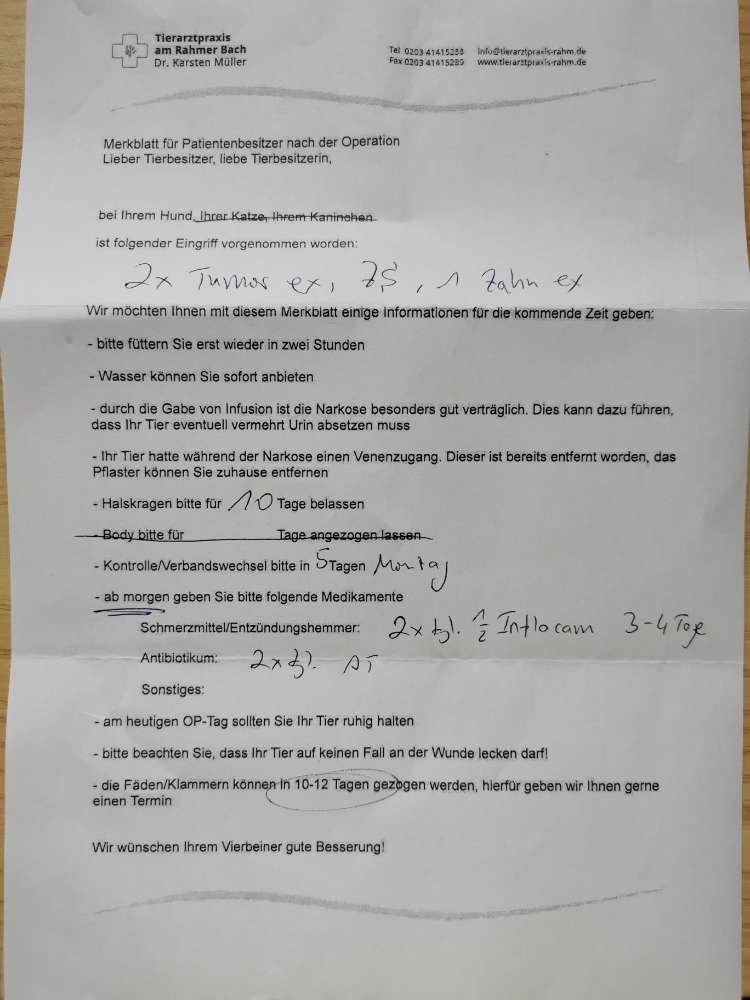 Tierarztpraxis
am Rahmer Bach
Dr. Karsten Müller
Tel 0203 41415288 info@tierarztpraxis-rahm.de
Fax 0203 41415289 www.tierarztpraxis-rahm.de
Merkblatt für Patientenbesitzer nach der Operation
Lieber Tierbesitzer, liebe Tierbesitzerin,
bei Ihrem Hund, Ihrer Katze, Ihrem Kaninchen
ist folgender Eingriff vorgenommen worden:
2x Tumor ex, ZS, 1 Zahn ex
Wir möchten Ihnen mit diesem Merkblatt einige Informationen für die kommende Zeit geben:
- bitte füttern Sie erst wieder in zwei Stunden
- Wasser können Sie sofort anbieten
- durch die Gabe von Infusion ist die Narkose besonders gut verträglich. Dies kann dazu führen,
dass Ihr Tier eventuell vermehrt Urin absetzen muss
- Ihr Tier hatte während der Narkose einen Venenzugang. Dieser ist bereits entfernt worden, das
Pflaster können Sie zuhause entfernen
- Halskragen bitte für 10 Tage belassen
- Body bitte für Tage angezogen lassen
- Kontrolle/Verbandswechsel bitte in 5 Tagen Montag
- ab morgen geben Sie bitte folgende Medikamente
Schmerzmittel/Entzündungshemmer: 2x tgl. 1/2 Inflocam 3-4 Tage
Antibiotikum: 2x tgl. AT
Sonstiges:
- am heutigen OP-Tag sollten Sie Ihr Tier ruhig halten
- bitte beachten Sie, dass Ihr Tier auf keinen Fall an der Wunde lecken darf!
- die Fäden/Klammern können in 10-12 Tagen gezogen werden, hierfür geben wir Ihnen gerne
einen Termin
Wir wünschen Ihrem Vierbeiner gute Besserung!